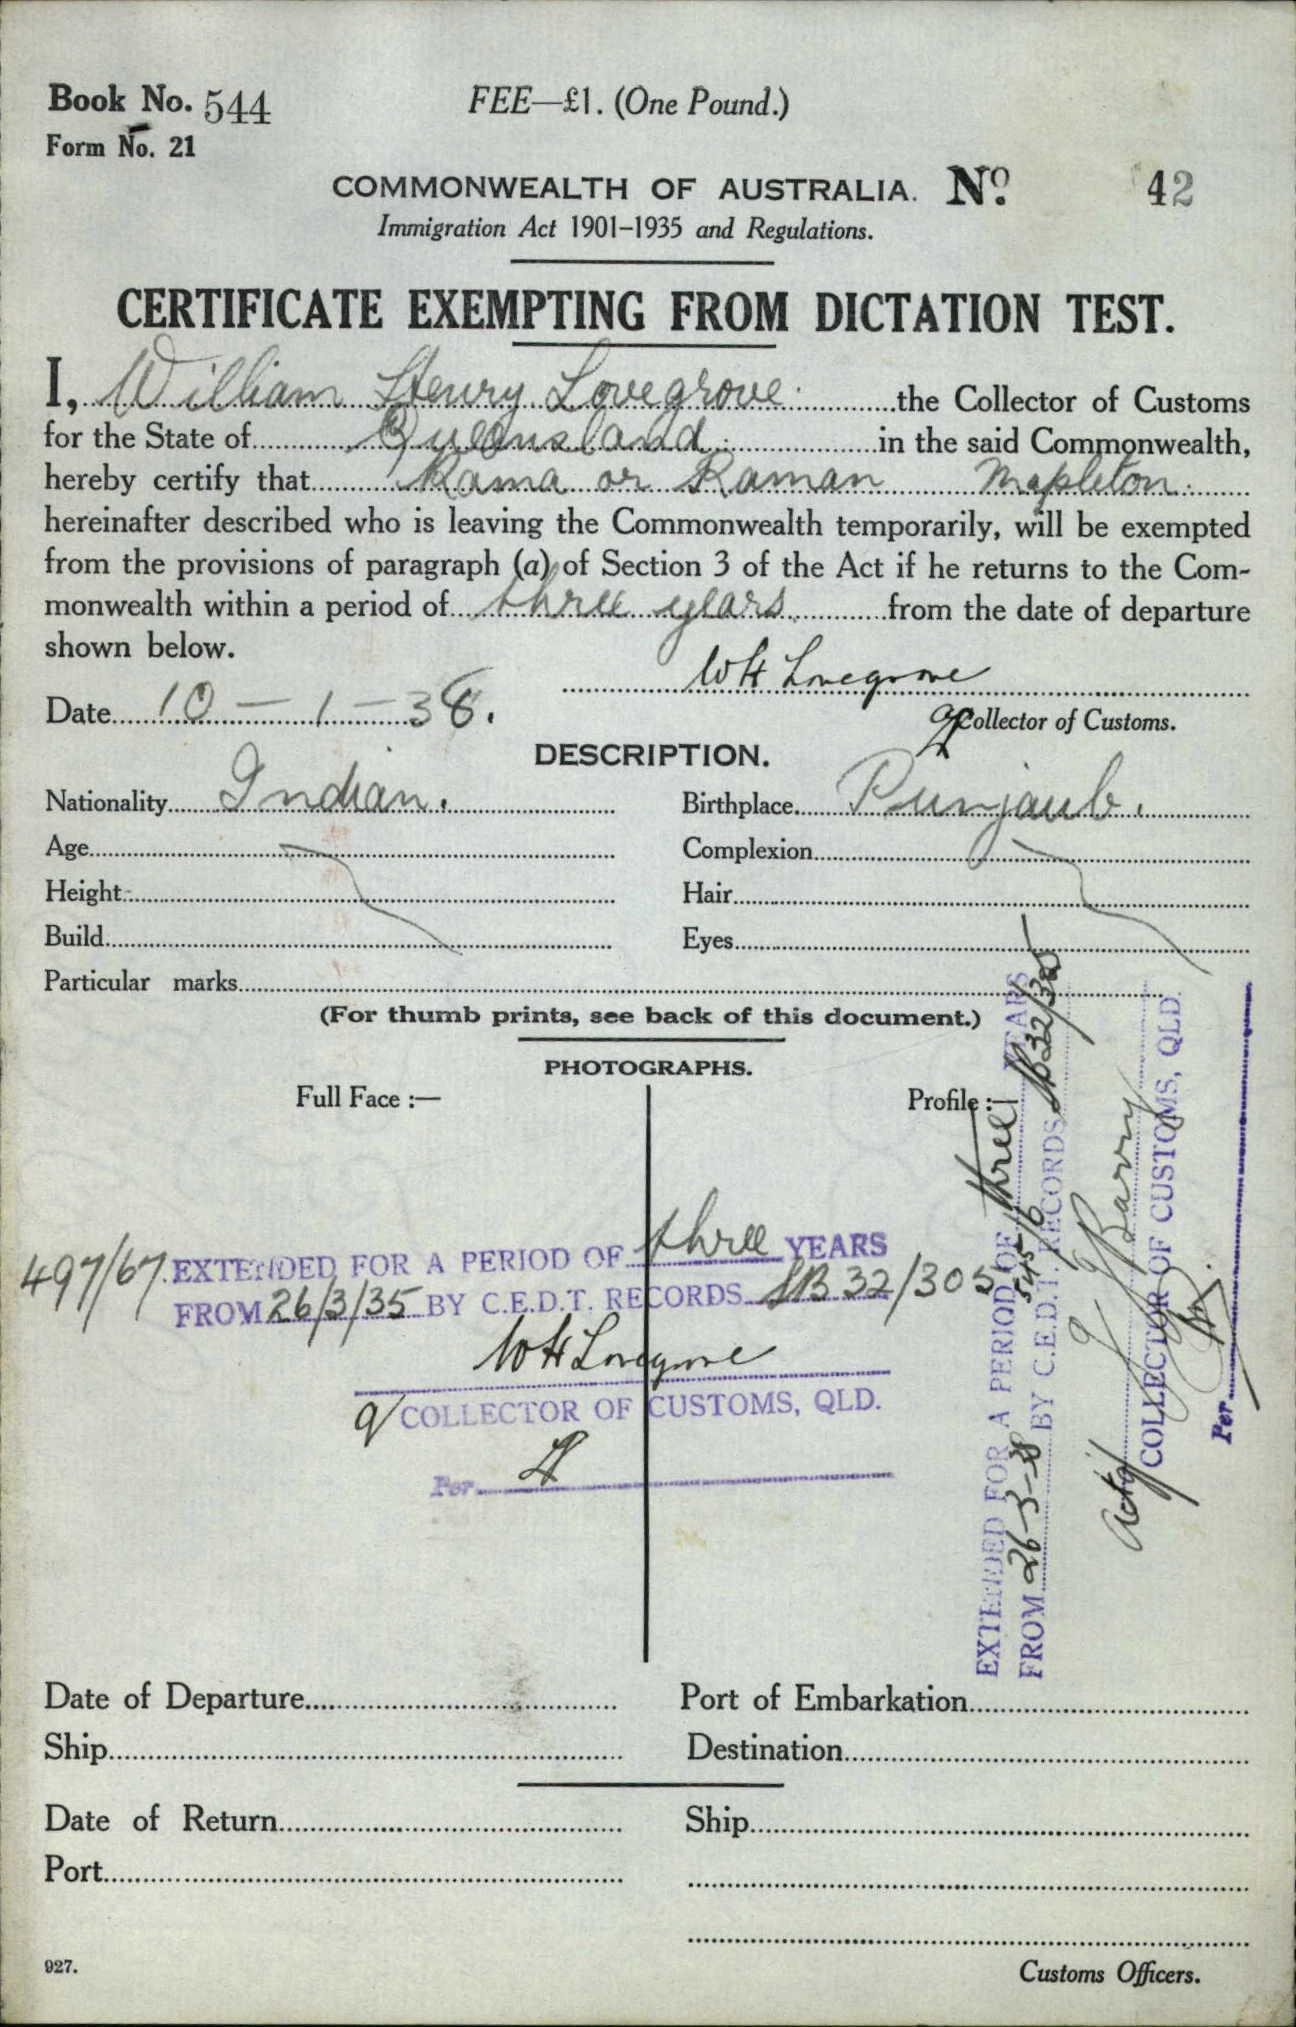 Book No. 544
FEE—£1. (One Pound.)
Form No. 21
COMMONWEALTH OF AUSTRALIA. No. 42
Immigration Act 1901–1935 and Regulations.
CERTIFICATE EXEMPTING FROM DICTATION TEST.
I, William Henry Lovegrove the Collector of Customs
for the State of Queensland in the said Commonwealth,
hereby certify that Rama or Raman Mapleton
hereinafter described who is leaving the Commonwealth temporarily, will be exempted
from the provisions of paragraph (a) of Section 3 of the Act if he returns to the Com-
monwealth within a period of three years from the date of departure
shown below.
WH Lovegrove
Date 10 – 1 – 38.
Collector of Customs.
DESCRIPTION.
Nationality Indian. Birthplace Punjaub.
Age Complexion
Height Hair
Build Eyes
Particular marks
(For thumb prints, see back of this document.)
PHOTOGRAPHS.
Full Face :— Profile :—
497/67. EXTENDED FOR A PERIOD OF three YEARS
FROM 26/3/35 BY C.E.D.T. RECORDS SB 32/305
WH Lovegrove
COLLECTOR OF CUSTOMS, QLD.
Per
EXTENDED FOR A PERIOD OF three YEARS
545/6
FROM 26-3-38 BY C.E.D.T. RECORDS SB 32/305
Barry
Actg COLLECTOR OF CUSTOMS, QLD.
Per
Date of Departure Port of Embarkation
Ship Destination
Date of Return Ship
Port
927.
Customs Officers.